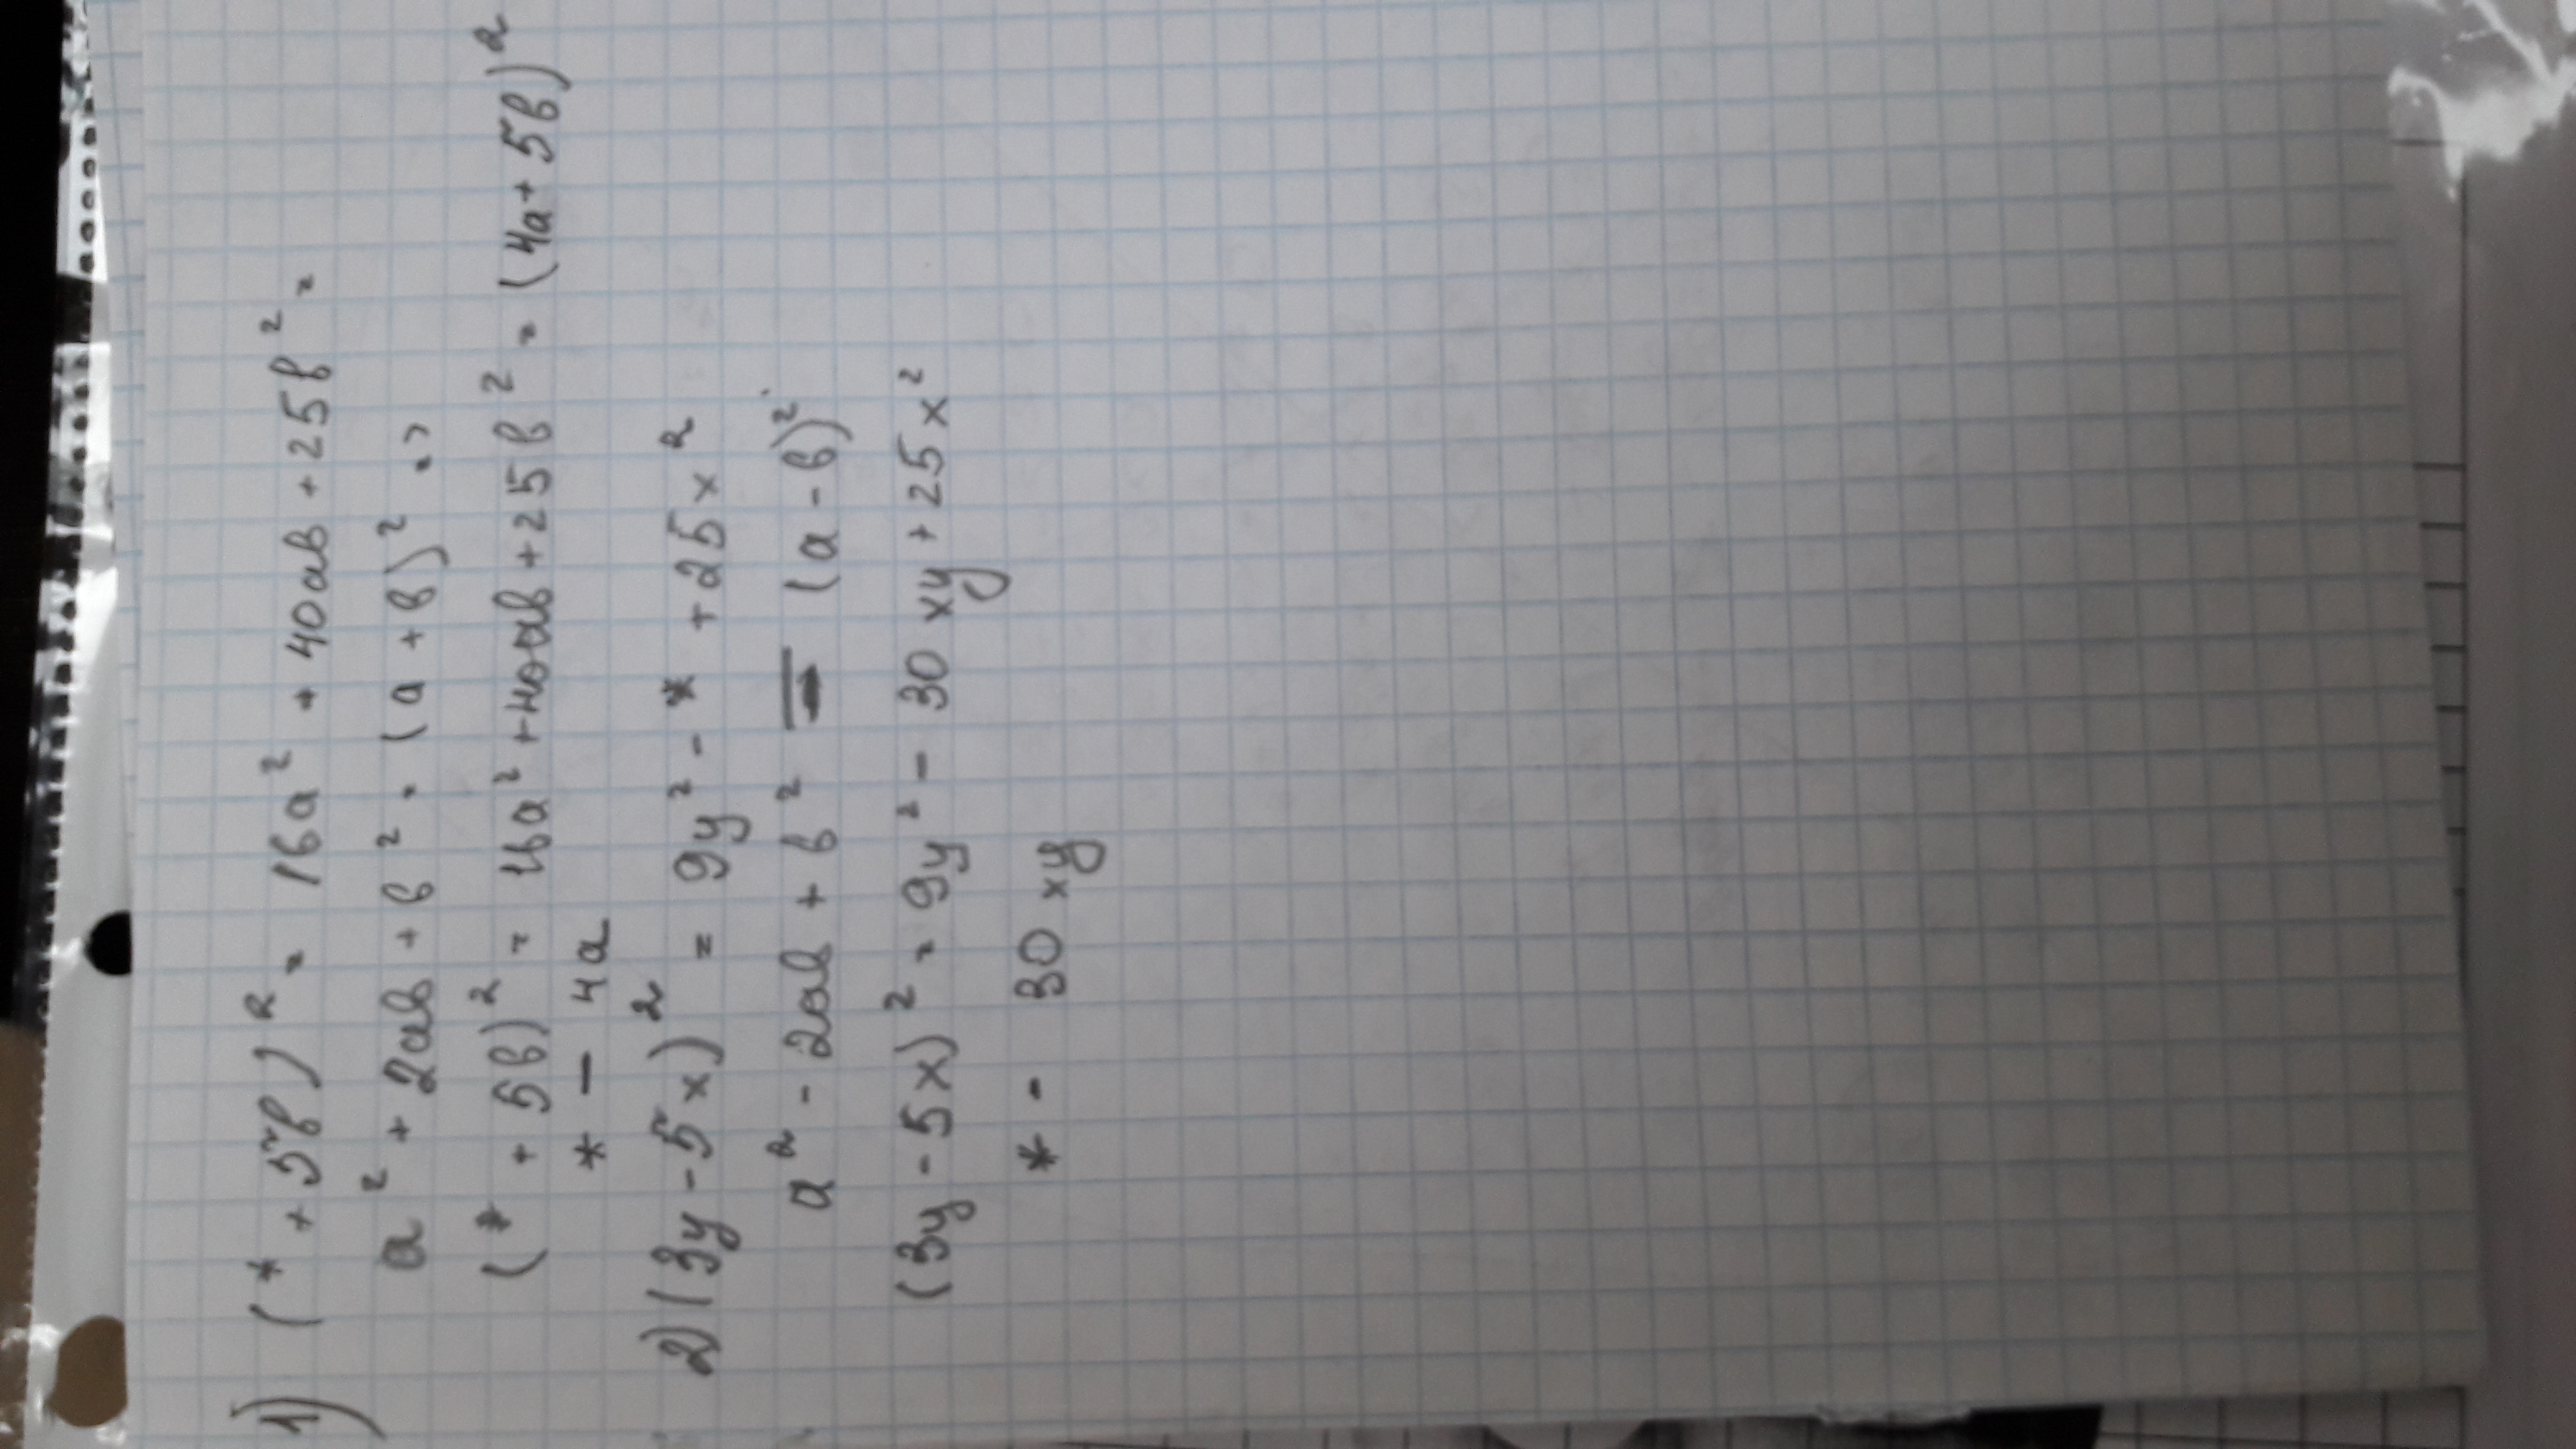 1) (* + 5в)² = 16a² + 40aв + 25в² =
a² + 2aв + в² = (a + в)² =>
(* + 5в)² = 16a² + 40aв + 25в² = (4a + 5в)²
* — 4a
2) (3y - 5x)² = 9y² - * + 25x²
a² - 2aв + в² = (a - в)²
(3y - 5x)² = 9y² - 30xy + 25x²
* - 30xy